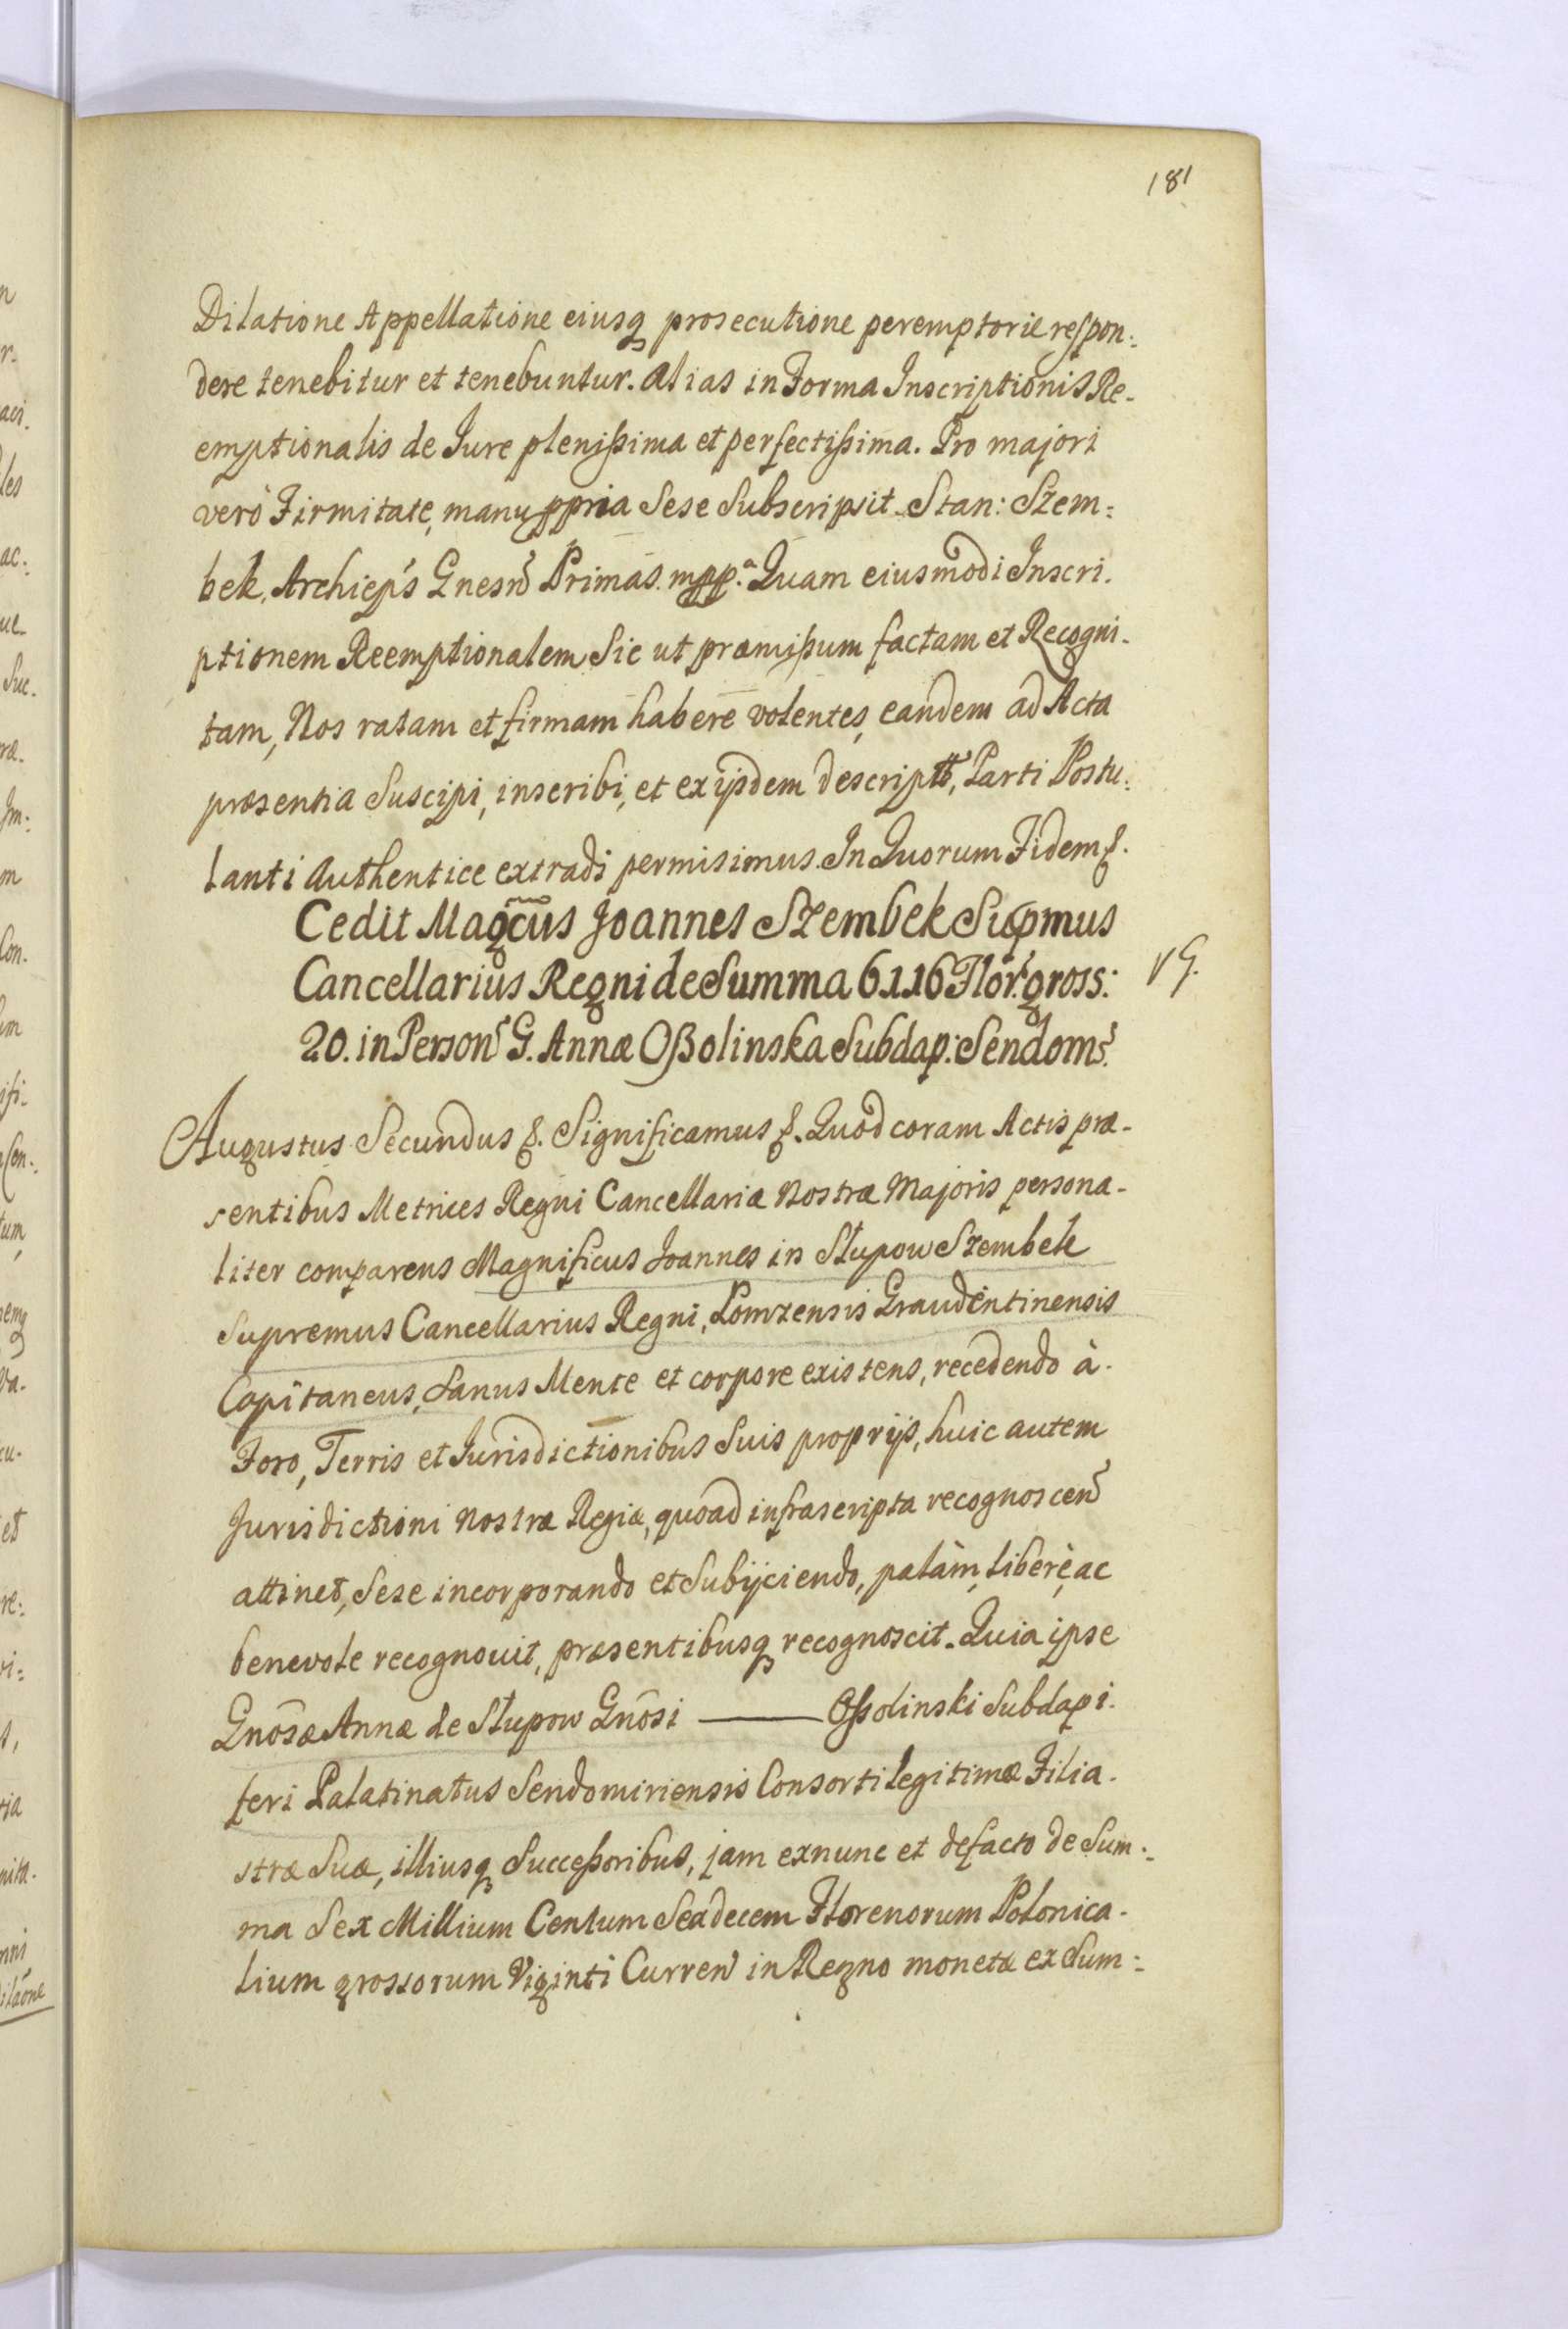 181
Dilatione Appellatione eiusq prosecutione peremptorie respon:
dere tenebitur et tenebuntur. Alias in Forma Inscriptionis Re-
emptionalis de Iure plenißima et perfectißima. Pro majori
verò Firmitate, manu ppria Sese Subscripsit. Stan: Szem=
bek, Archiep's Gnesn Primas. mpp.a Quam eiusmodi Inscri.
ptionem Reemptionalem Sic ut præmißum factam et Recogni-
tam, Nos ratam et firmam habere volentes, eandem ad Acta
præsentia Suscipi, inscribi, et ex ijsdem descriptt, Parti Postu:
lanti Authentice extradi permisimus. In Quorum Fidem &.
Cedit Magcus Joannes Szembek Supmus
Cancellarius Regni de Summa 6116 Flor. gross:
20. in Person G. Annæ Oßolinska Subdap: Sendom.
VG.
Augustus Secundus &. Significamus &. Quod coram Actis præ-
sentibus Metrices Regni Cancellariæ Nostræ Majoris persona-
liter comparens Magnificus Joannes in Słupow Szembek
Supremus Cancellarius Regni, Lomzensis Graudentinensis
Capitaneus, Sanus Mente et corpore existens, recedendo à.
Foro, Terris et Jurisdictionibus Suis proprijs, huic autem
Jurisdictioni Nostræ Regiæ, quoad infrascripta recognoscen
attinet, Sese incorporando et Subijciendo, palàm, liberè, ac
benevole recognouit, præsentibusq recognoscit. Quia ipse
Gnosæ Annæ de Słupow Gnosi ——— Oßolinski Subdapi.
feri Palatinatus Sendomiriensis Consorti legitimæ Filia.
stræ Suæ, illiusq Succeßoribus, jam exnunc et defacto de Sum:
ma Sex Millium Centum Sexdecem Florenorum Polonica.
lium grossorum Viginti Curren in Regno monetæ ex Sum: